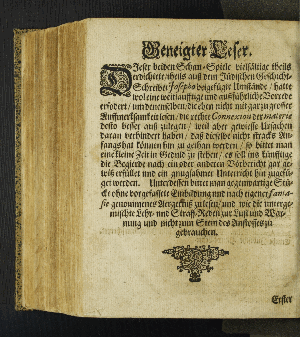 Geneigter Leser.
DIeser beiden Schau-Spiele vielfältige theils
erdichtete / theils auß dem Jüdischen Geschicht-
Schreiber Josepho beigefügte Umstände / hätte
wol eine weitläuftige und außführliche Vorrede
erfodert / um denenselben, die eben nicht mit gar zu grosser
Aufmercksamkeit lesen / die rechte Connexion der materie
desto besser auß zulegen / weil aber gewisse Ursachen
daran verhindert haben / daß dieselbe nicht stracks An-
fangs hat können hin zu gethan werden / so bittet man
eine kleine Zeit in Gedult zu stehen / es soll ins künftige
die Begierde nach ein oder anderen Vorbericht gar ge-
wis erfüllet und ein gnugsahmer Unterricht hin zugefü-
get werden. Unterdessen bittet man gegenwärtige Stü-
cke ohne vorgefaßete Einbildung und nach eigener fanta-
sie genommenes Aergernüß zulesen / und wie die unterge-
mischte Lehr- und Straff-Reden zur Lust und War-
nung und nicht zum Stein des Anstosses zu
gebrauchen.
Erster